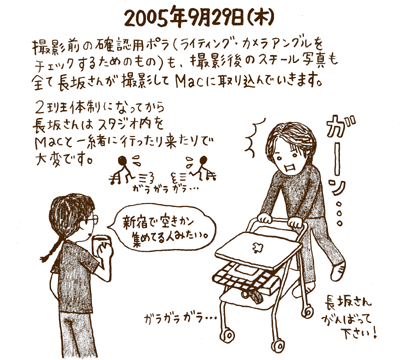 2005年9月29日(木)
撮影前の確認用ポラ(ライティング・カメラアングルを
チェックするためのもの)も、撮影後のスチール写真も
全て長坂さんが撮影してMacに取り込んでいきます。
2班体制になってから
長坂さんはスタジオ内を
Macと一緒に行ったり来たりで
大変です。
ガラガラガラ…
ガーン…
新宿で空きカン
集めてる人みたい。
ガラガラガラ…
長坂さん
がんばって
下さい!